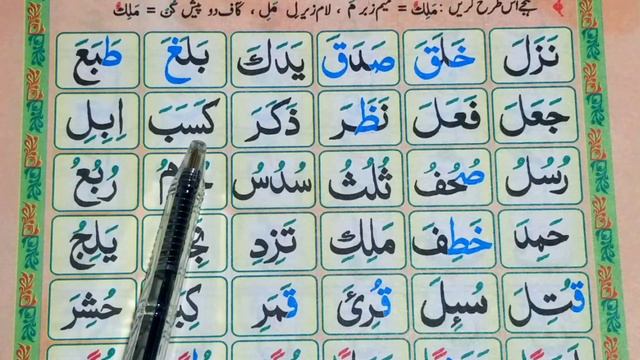 ہجے اس طرح کریں: مَلِكٌ = میم زبر مَ، لام زیر لِ مَلِ، کاف دو پیش كٌ = مَلِكٌ
نَزَلَ خَلَقَ صَدَقَ يَدَكَ بَلَغَ طَبَعَ
جَعَلَ فَعَلَ نَظَرَ ذَكَرَ كَسَبَ اِبِلِ
رُسُلُ صُحُفُ ثُلُثُ سُدُسُ رُبُعُ
حَمِدَ خَطِفَ مَلِكِ تَزِدِ يَلِجُ
قُتِلَ سُئِلَ قُرِئَ قَمَرِ حُشِرَ